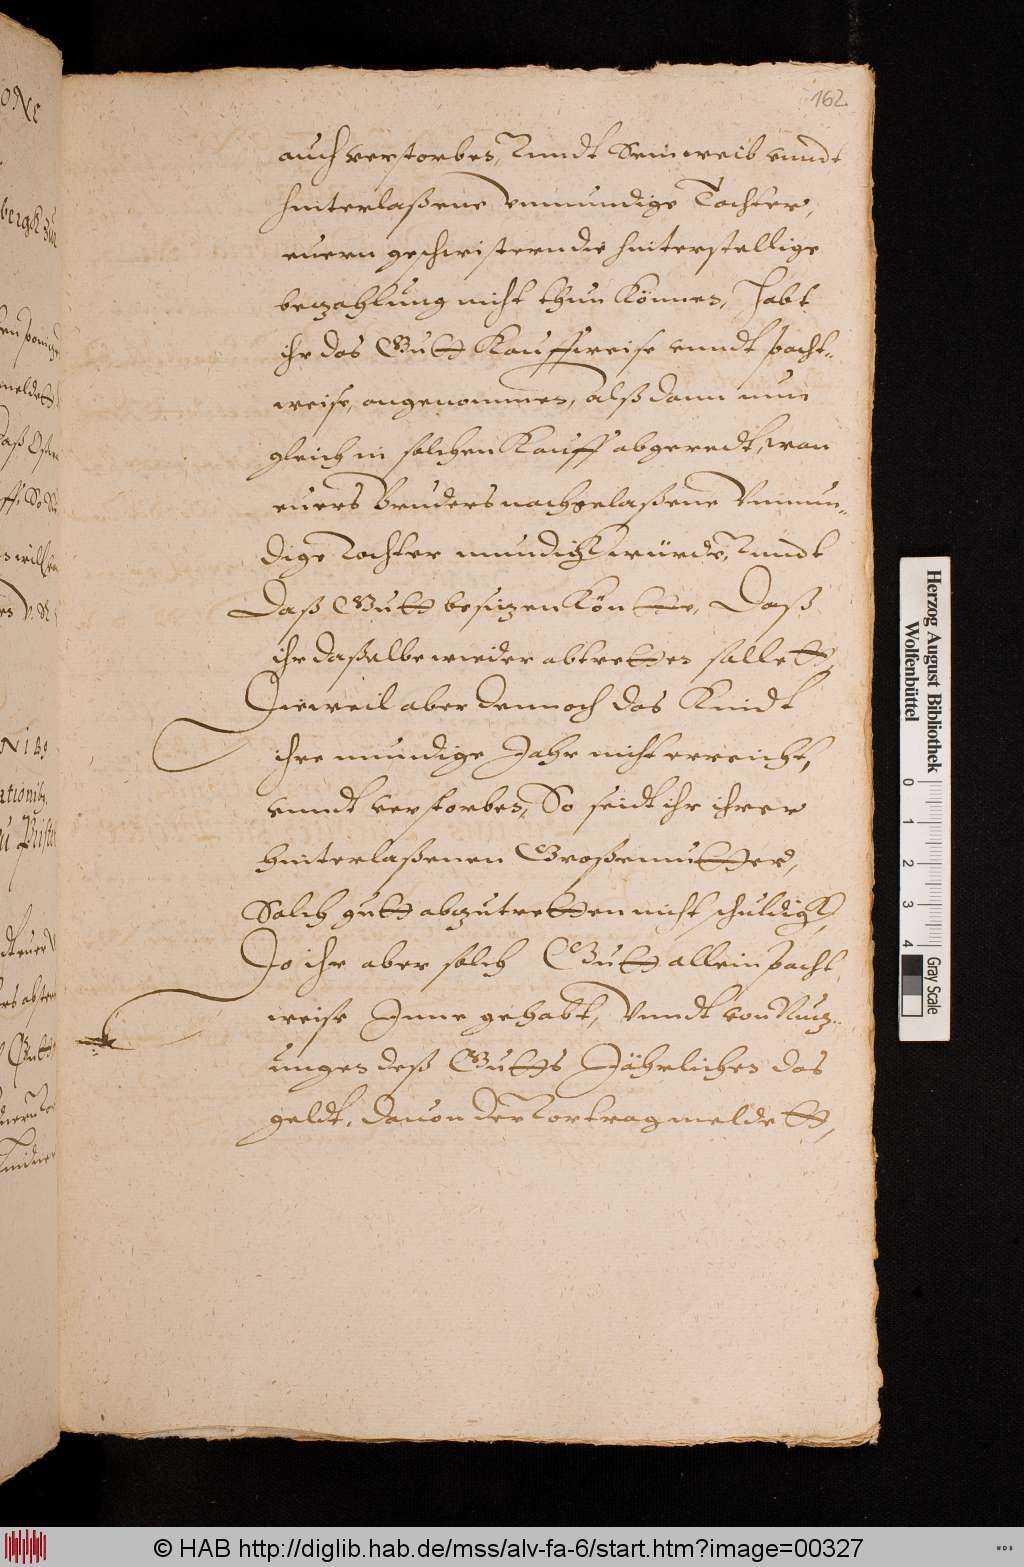 162.
auch verstorben, Vnndt Sein weib vnndt
hinterlaßene vnmundige Tochter,
euern geschwistern die hinterstellige
bezahlung nicht thun können, Habt
ihr das Gutt Kauffweise vnndt pacht-
weise, angenommen, alß dann nun
gleich in solchen Kauff abgeredt, wan
euers Bruders nachgelaßene Vnmun-
dige Tochter mundigk würde, Vnndt
Daß Gutt besizen köntte, Daß
ihr daßelbe wieder abtretten sollett,
Dieweil aber dennoch das Kindt
ihre mundige Jahr nicht erreicht,
vnndt verstorben, So seidt ihr ihrer
hinterlaßenen Großemutter,
Solch gutt abzutretten nicht schuldigk,
Do ihr aber solch Gutt allein pacht
weise Inne gehabt, Vnndt von Nuz-
ungen deß Gutts Jährlichen das
geldt, dauon der Vortrag meldett,
Herzog August Bibliothek
Wolfenbüttel
0 1 2 3 4
Gray Scale
© HAB http://diglib.hab.de/mss/alv-fa-6/start.htm?image=00327